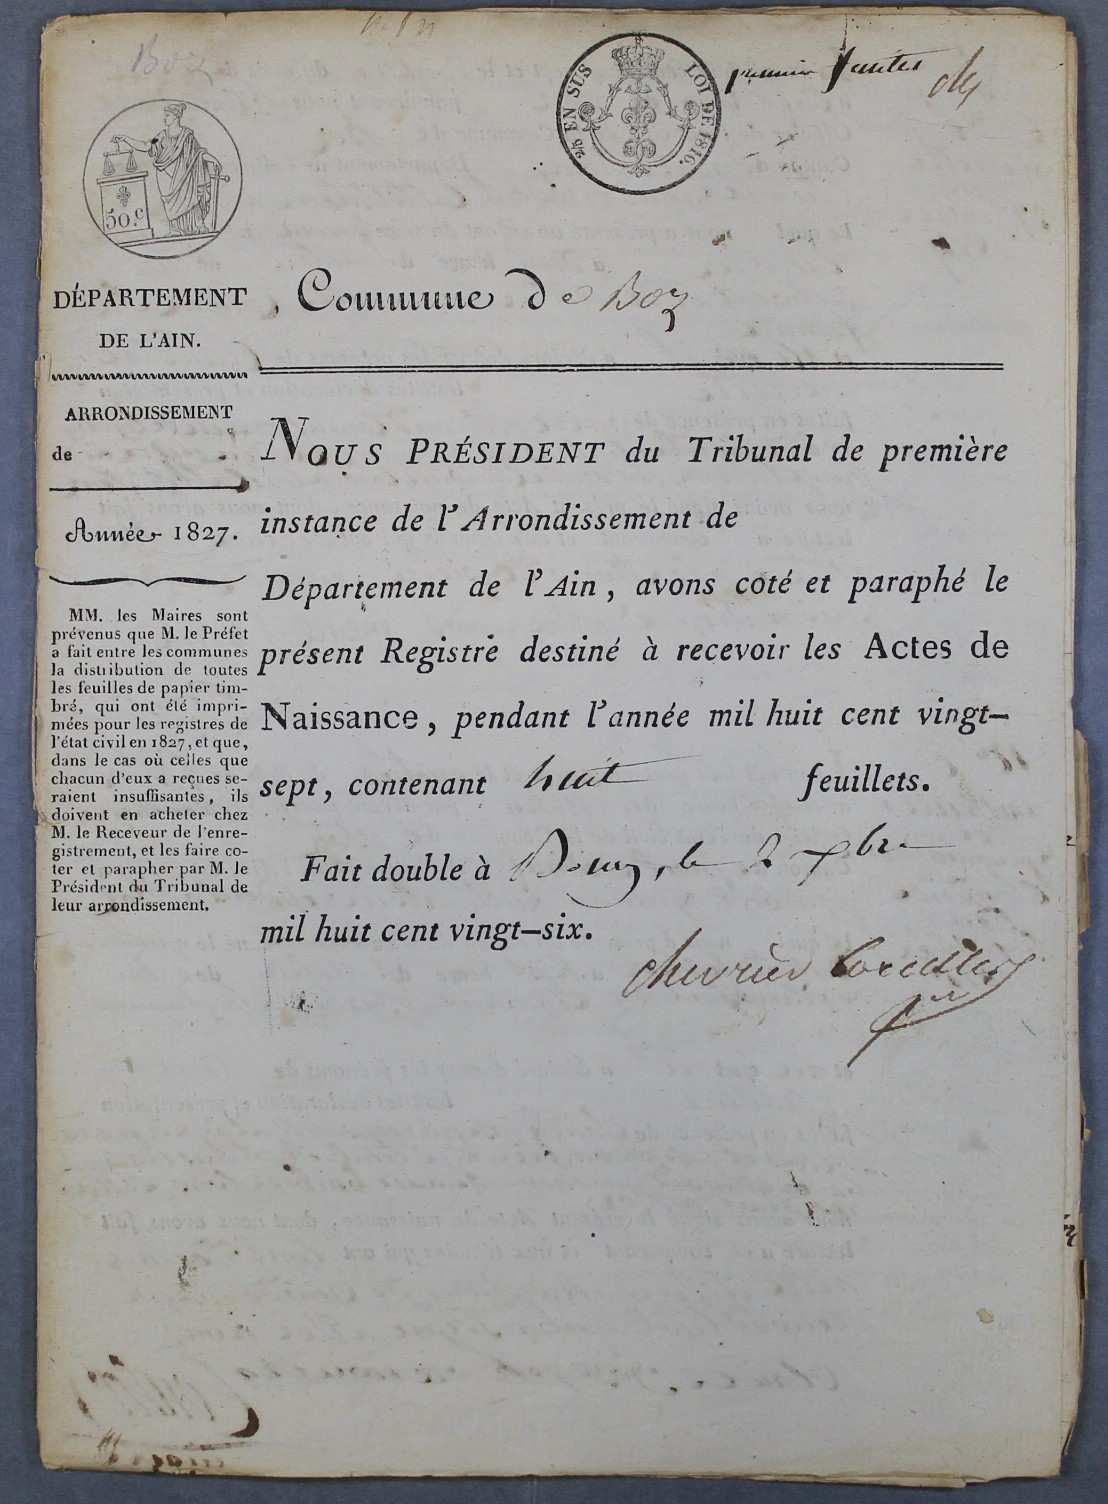 Boz
2/5 EN SUS LOI DE 1816.
premier feuillet
50.c
DÉPARTEMENT
DE L'AIN.
Commune de Boz
ARRONDISSEMENT
de
Année 1827.
MM. les Maires sont
prévenus que M. le Préfet
a fait entre les communes
la distribution de toutes
les feuilles de papier tim-
bré, qui ont été impri-
mées pour les registres de
l'état civil en 1827, et que,
dans le cas où celles que
chacun d'eux a reçues se-
raient insuffisantes, ils
doivent en acheter chez
M. le Receveur de l'enre-
gistrement, et les faire co-
ter et parapher par M. le
Président du Tribunal de
leur arrondissement.
NOUS PRÉSIDENT du Tribunal de première
instance de l'Arrondissement de
Département de l'Ain, avons coté et paraphé le
présent Registre destiné à recevoir les Actes de
Naissance, pendant l'année mil huit cent vingt-
sept, contenant huit feuillets.
Fait double à Bourg, le 2 xbre
mil huit cent vingt-six.
chevrier Corcelles